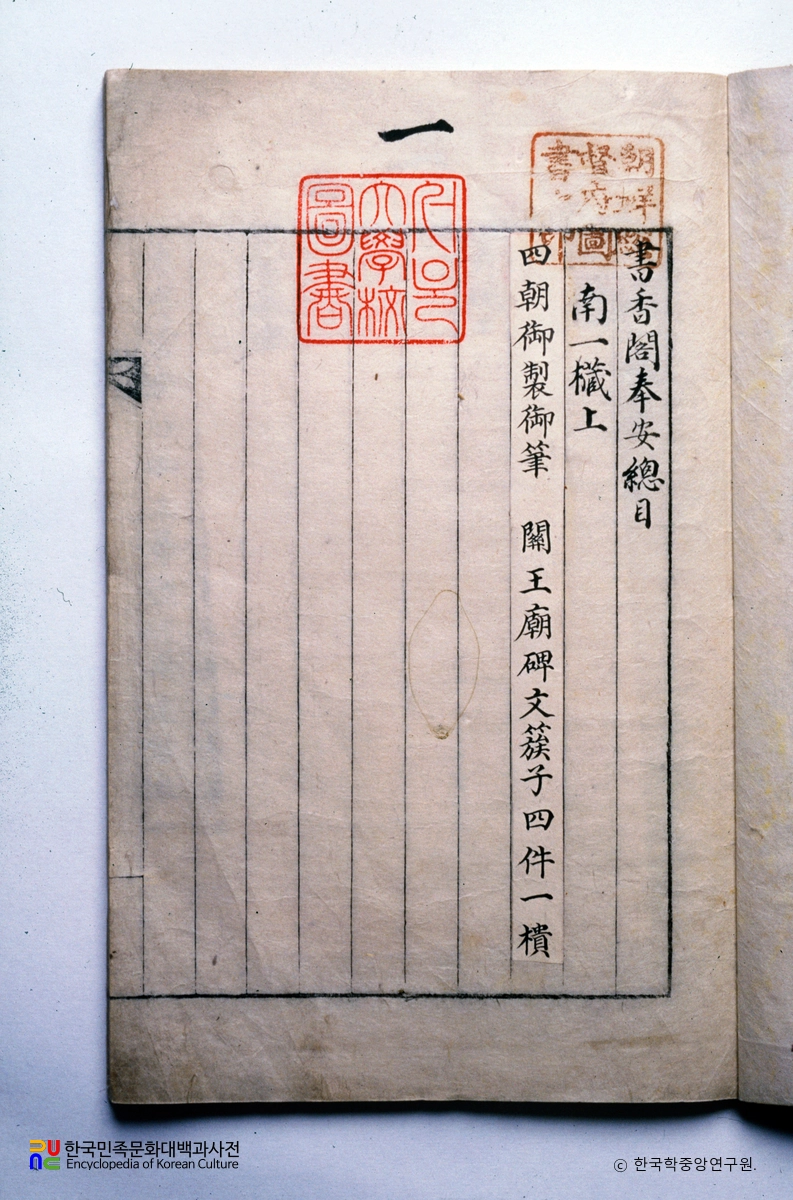 一
朝鮮總
督府圖
書之印
大學校
圖書
書香閣奉安總目
南一欌上
四朝御製御筆 關王廟碑文簇子四件一樻
한국민족문화대백과사전
Encyclopedia of Korean Culture
ⓒ 한국학중앙연구원.